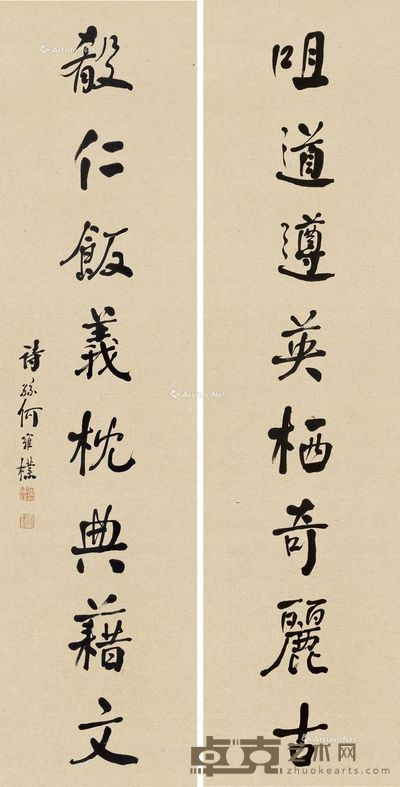 咀道遵英栖奇麗吉
殽仁飯義枕典藉文
詩孫何維樸
Artron.Net
卓克艺术网
www.zhuokearts.com